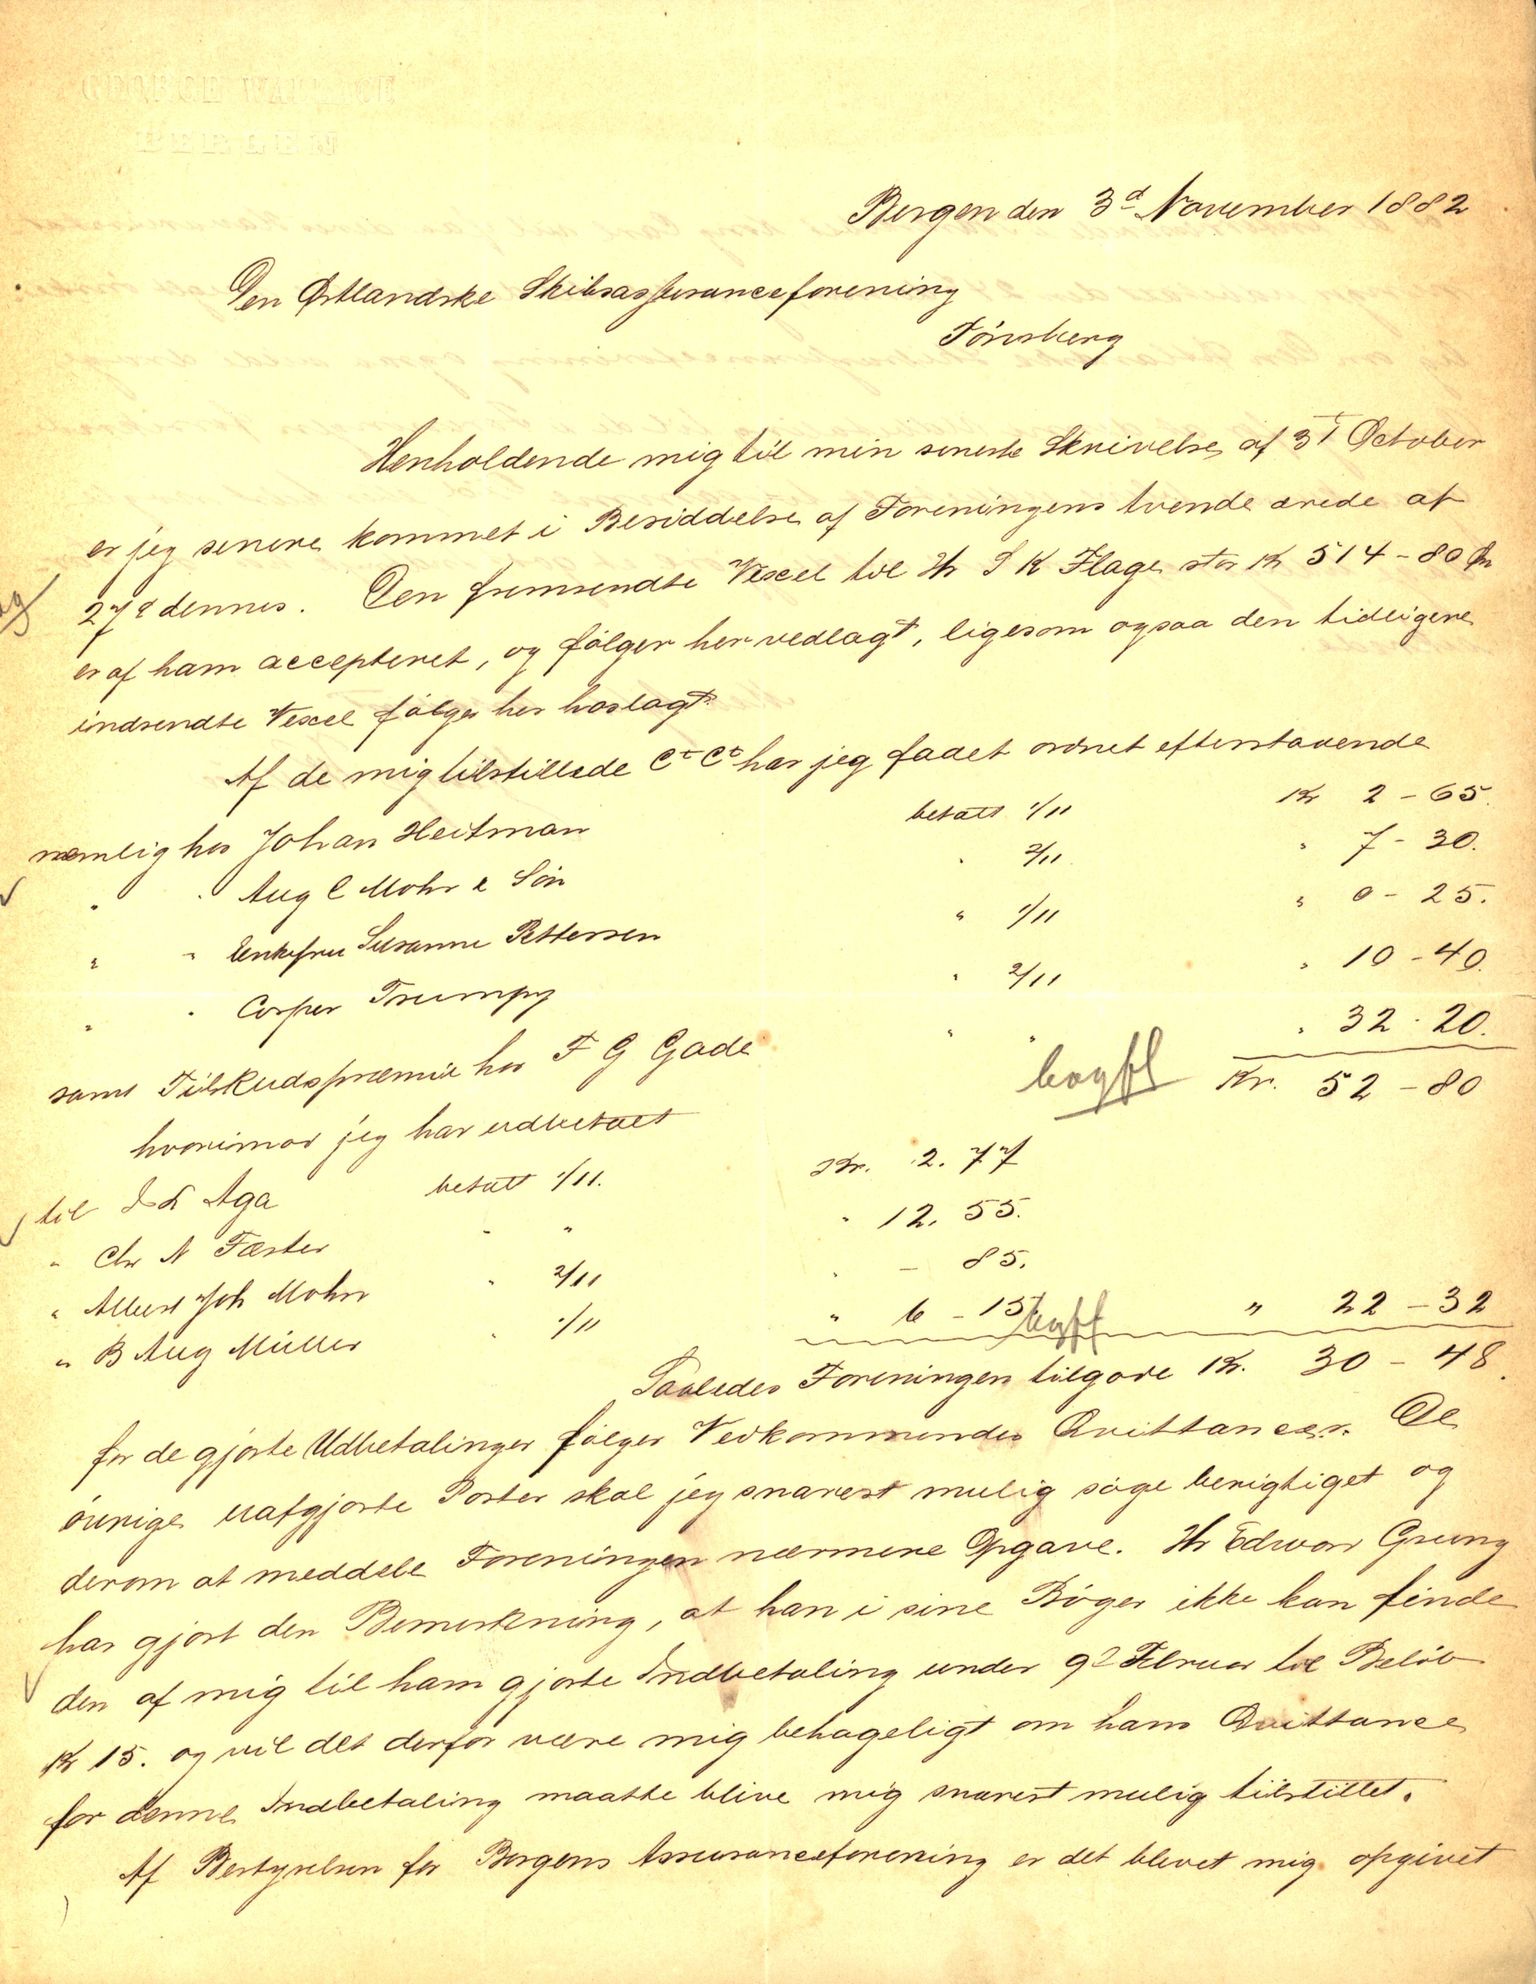 GEORGE WALLACE
BERGEN
Bergen den 3d November 1882
Den Østlandske Skibsassuranceforening
Tönsberg
Henholdende mig til min seneste Skrivelse af 3t October
er jeg senere kommet i Besiddelse af Foreningens tvende ærede af
27d dennes. Den fremsendte Vexel til Hr S K Flage stor Kr 514-80 Øn
er af ham accepteret, og fölger her vedlagt, ligesom ogsaa den tidligere
indsendte Vexel fölger her hoslagt
Af de mig tilstillede Ct Ct har jeg faaet ordnet efterstavende
nemlig hos Johan Heitman betalt 1/11 Kr 2-65.
" " Aug C Mohr & Sön " 2/11 " 7-30.
" " Enkefru Susanne Pettersen " 1/11 " 0-25.
" " Casper Trumpy " 2/11 " 10-40.
samt Tilskudspræmie hos F G Gade " " " 32.20.
bogfl Kr. 52-80
hvorimod jeg har udbetalt
til Aga betalt 1/11. Kr. 2.77
" Chr N Fæster " " " 12.55.
" Albert Joh Mohn " 2/11 " - 85.
" B Aug Müller " 1/11 " 6-15 bogfl " 22-32
Saaledes Foreningen tilgode Kr. 30-48.
for de gjorte Udbetalinger fölger Vedkommendes Qvittancer. De
övrige uafgjorte Poster skal jeg snarest mulig söge berigtiget og
derom at meddele Foreningen nærmere Opgave. Hr Edvard Grung
har gjort den Bemerkning, at han i sine Böger ikke kan finde
den af mig til ham gjorte Indbetaling under 9d Februar til Belöb
Kr 15. og vil det derfor være mig behageligt om hans Qvittance
for denne Indbetaling maatte blive mig snarest mulig tilstillet.
Af Bestyrelsen for Bergens Assuranceforening er det blevet mig opgivet